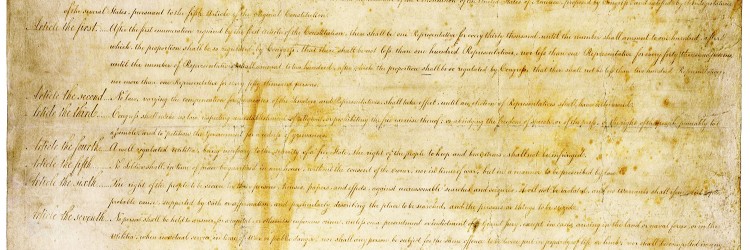 of the several States, pursuant to the fifth Article of the original Constitution.
Article the first. After the first enumeration required by the first Article of the Constitution, there shall be one Representative for every thirty thousand, until the number shall amount to one hundred, after
which, the proportion shall be so regulated by Congress, that there shall be not less than one hundred Representatives, nor less than one Representative for every forty thousand persons,
until the number of Representatives shall amount to two hundred, after which the proportion shall be so regulated by Congress, that there shall not be less than two hundred Representatives,
nor more than one Representative for every fifty thousand persons.
Article the second. No law, varying the compensation for the services of the Senators and Representatives, shall take effect, until an election of Representatives shall have intervened.
Article the third. Congress shall make no law respecting an establishment of religion, or prohibiting the free exercise thereof; or abridging the freedom of speech, or of the press; or the right of the people peaceably to
assemble, and to petition the Government for a redress of grievances.
Article the fourth. A well regulated militia, being necessary to the security of a free State, the right of the people to keep and bear arms, shall not be infringed.
Article the fifth. No Soldier shall, in time of peace be quartered in any house, without the consent of the owner, nor in time of war, but in a manner to be prescribed by law.
Article the sixth. The right of the people to be secure in their persons, houses, papers, and effects, against unreasonable searches and seizures, shall not be violated, and no warrants shall issue, but upon
probable cause, supported by oath or affirmation, and particularly describing the place to be searched, and the persons or things to be seized.
Article the seventh. No person shall be held to answer for a capital, or otherwise infamous crime, unless on a presentment or indictment of a Grand Jury, except in cases arising in the land or naval forces, or in the
Militia, when in actual service in time of War or public danger; nor shall any person be subject for the same offence to be twice put in jeopardy of life or limb; nor shall be compelled in any